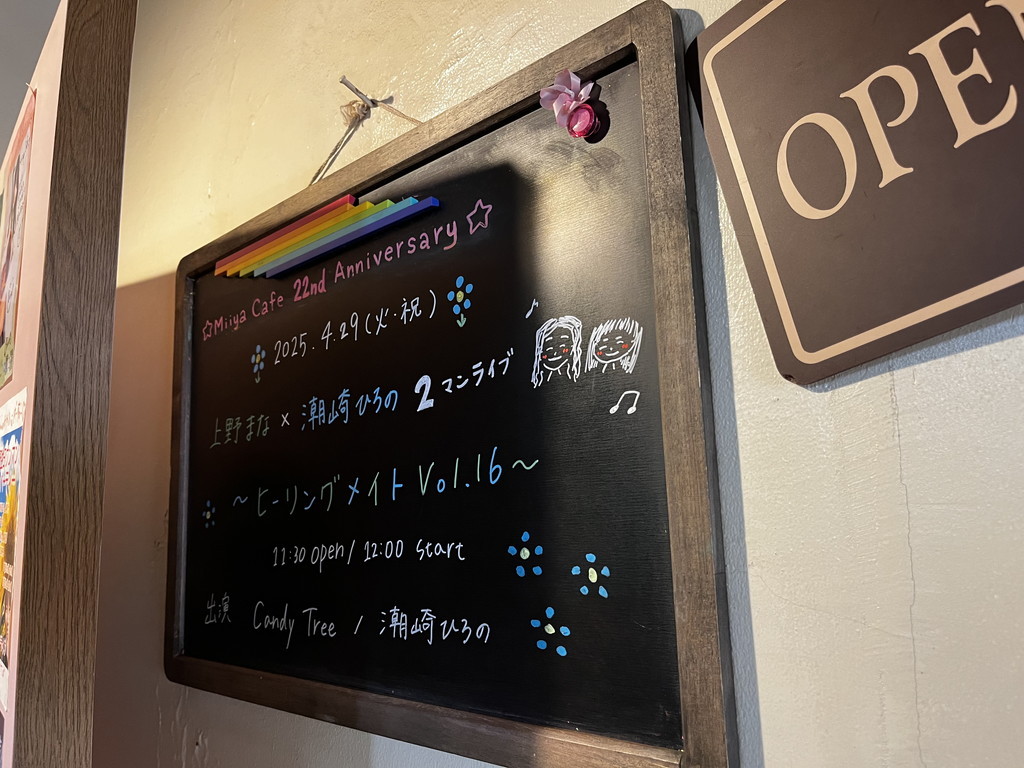 ☆Miiya Cafe 22nd Anniversary☆
2025.4.29(火・祝)
上野まな × 潮崎ひろの 2マンライブ
～ヒーリングメイト Vol.16～
11:30 open / 12:00 start
出演 Candy Tree / 潮崎ひろの
OPE